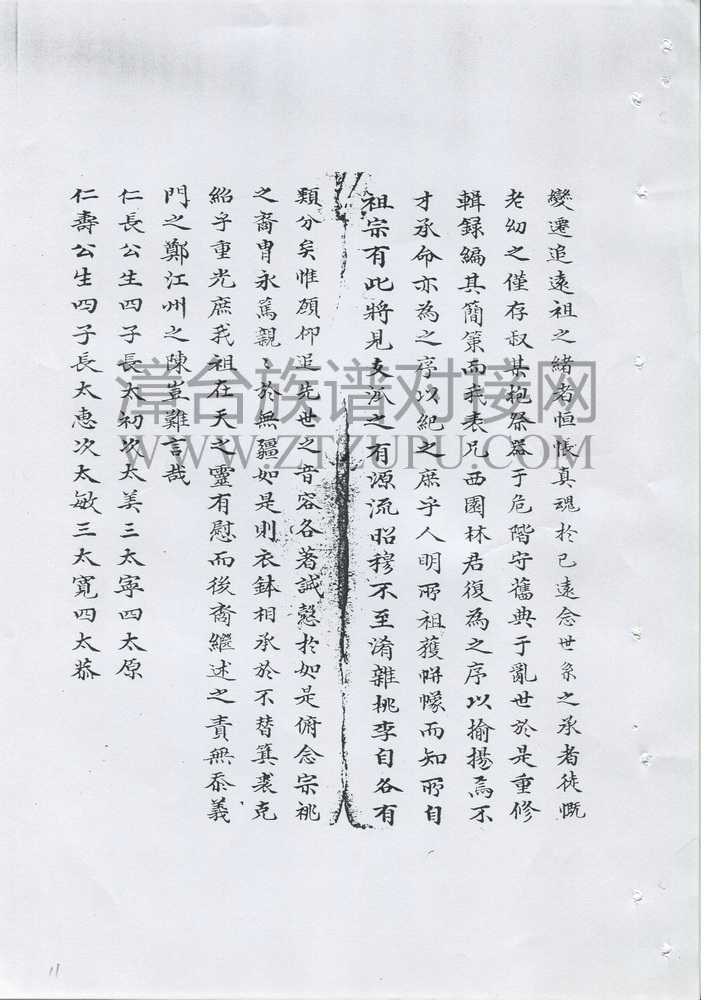 變遷追遠祖之緒者恒悵真魂於已遠念世系之承者徒慨
老幼之僅存叔其抱祭器于危階守舊典于亂世於是重修
輯録編其簡策而我表兄西園林君復為之序以揄揚焉不
才承命亦為之序以紀之庶乎人明所祖獲帡幪而知所自
祖宗有此將見支派之有源流昭穆不至淆雜桃李自各有
類分矣惟願仰追先世之音容各著誠慤於如是俯念宗祧
之裔胄永篤親〻於無疆如是則衣鉢相承於不替箕裘克
紹乎重光庶我祖在天之靈有慰而後裔繼述之責無忝義
門之鄭江州之陳豈難言哉
仁長公生四子長太初次太美三太寧四太原
仁壽公生四子長太惠次太敏三太寬四太恭
漳台族谱对接网
WWW.ZTZUPU.COM
11